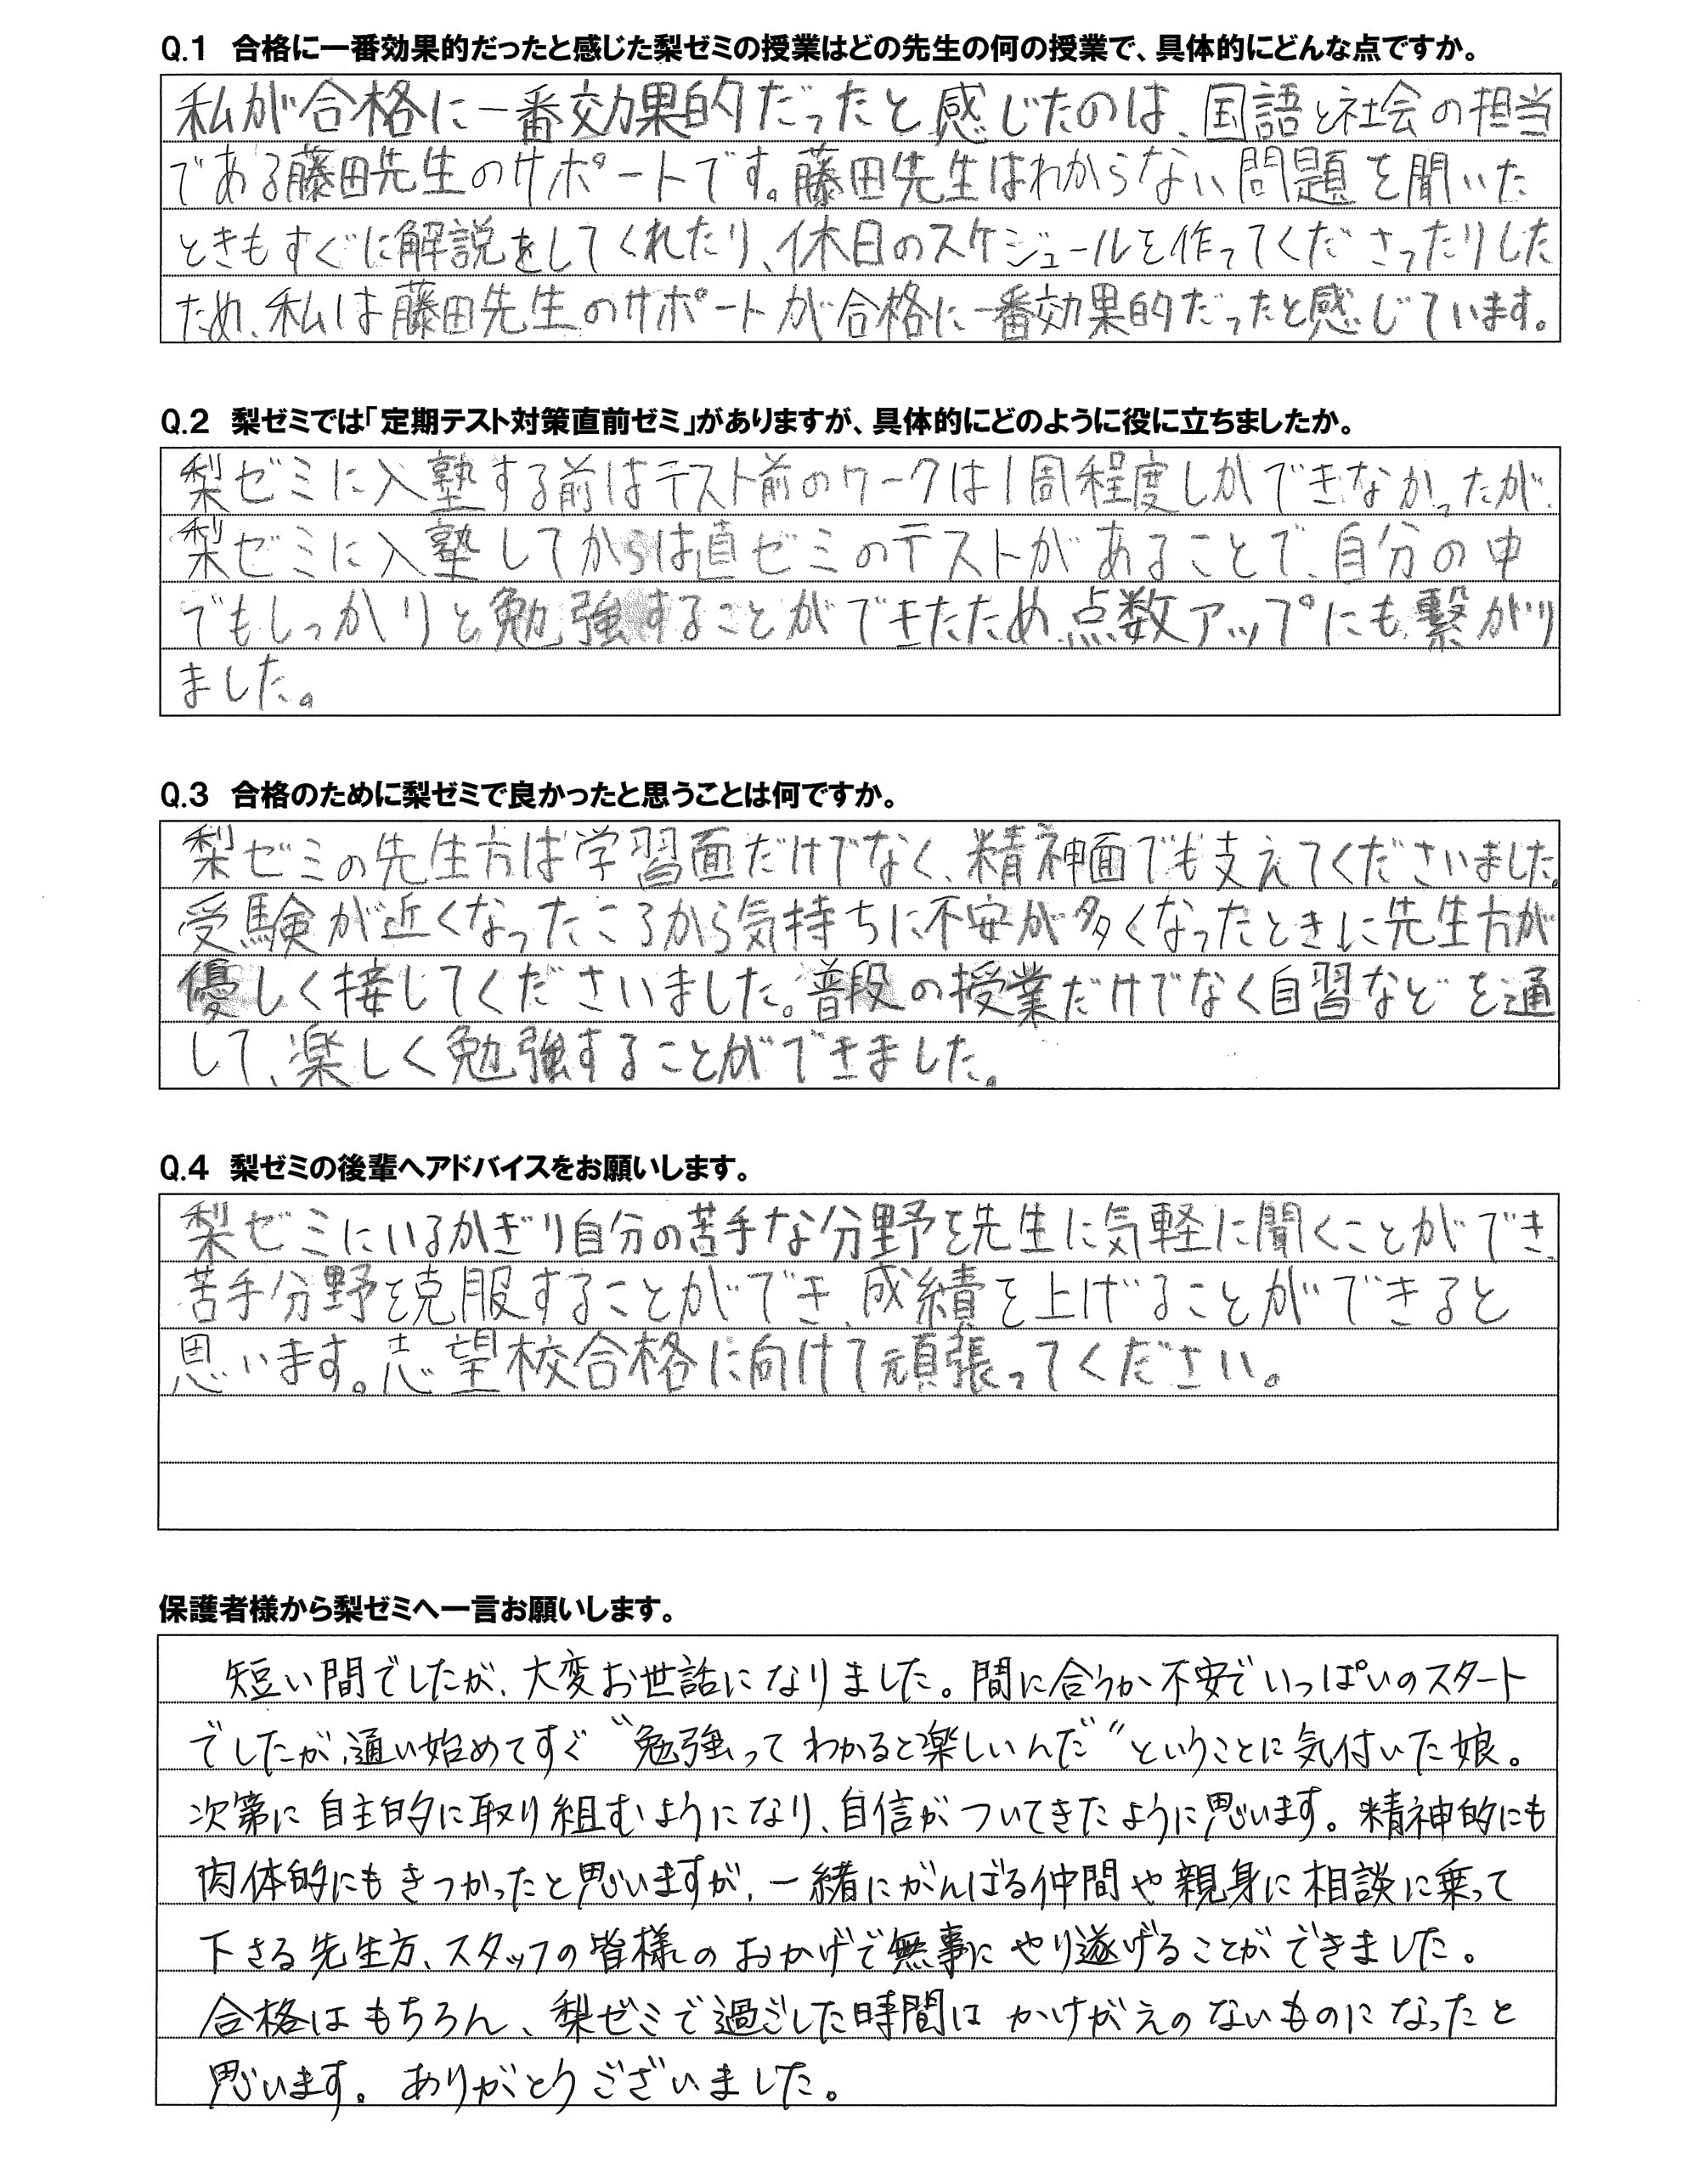 Q.1 合格に一番効果的だったと感じた梨ゼミの授業はどの先生の何の授業で、具体的にどんな点ですか。
私が合格に一番効果的だったと感じたのは、国語と社会の担当
である藤田先生のサポートです。藤田先生はわからない問題を聞いた
ときもすぐに解説をしてくれたり、休日のスケジュールを作ってくださったりした
ため、私は藤田先生のサポートが合格に一番効果的だったと感じています。
Q.2 梨ゼミでは「定期テスト対策直前ゼミ」がありますが、具体的にどのように役に立ちましたか。
梨ゼミに入塾する前はテスト前のワークは1周程度しかできなかったが、
梨ゼミに入塾してからは直ゼミのテストがあることで、自分の中
でもしっかりと勉強することができたため、点数アップにも繋がり
ました。
Q.3 合格のために梨ゼミで良かったと思うことは何ですか。
梨ゼミの先生方は学習面だけでなく、精神面でも支えてくださいました。
受験が近くなったころから気持ちに不安が多くなったときに先生方が
優しく接してくださいました。普段の授業だけでなく自習などを通
して、楽しく勉強することができました。
Q.4 梨ゼミの後輩へアドバイスをお願いします。
梨ゼミにいるかぎり自分の苦手な分野を先生に気軽に聞くことができ、
苦手分野を克服することができ、成績を上げることができると
思います。志望校合格に向けて頑張ってください。
保護者様から梨ゼミへ一言お願いします。
短い間でしたが、大変お世話になりました。間に合うか不安でいっぱいのスタート
でしたが、通い始めてすぐ〝勉強ってわかると楽しいんだ〞ということに気付いた娘。
次第に自主的に取り組むようになり、自信がついてきたように思います。精神的にも
肉体的にもきつかったと思いますが、一緒にがんばる仲間や親身に相談に乗って
下さる先生方、スタッフの皆様のおかげで無事にやり遂げることができました。
合格はもちろん、梨ゼミで過ごした時間はかけがえのないものになったと
思います。ありがとうございました。